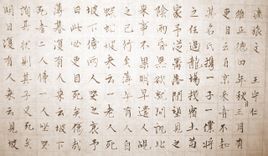 瘞旅文 王守仁
維正德四年秋月三日有
吏目云自京來者不知
其名氏攜一子一僕將
之任過龍場投宿土苗
家予從籬落間望見之
陰雨昏黑欲就問訊北
來事不果明早遣人覘
之已行矣薄午有人自
蜈蚣坡來云一老人死
坡下傍兩人哭之哀予
曰此必吏目死矣傷哉
薄暮復有人來云坡下
死者二人傍一人坐哭
詢其狀則其子又死矣
明日復有人來云見坡